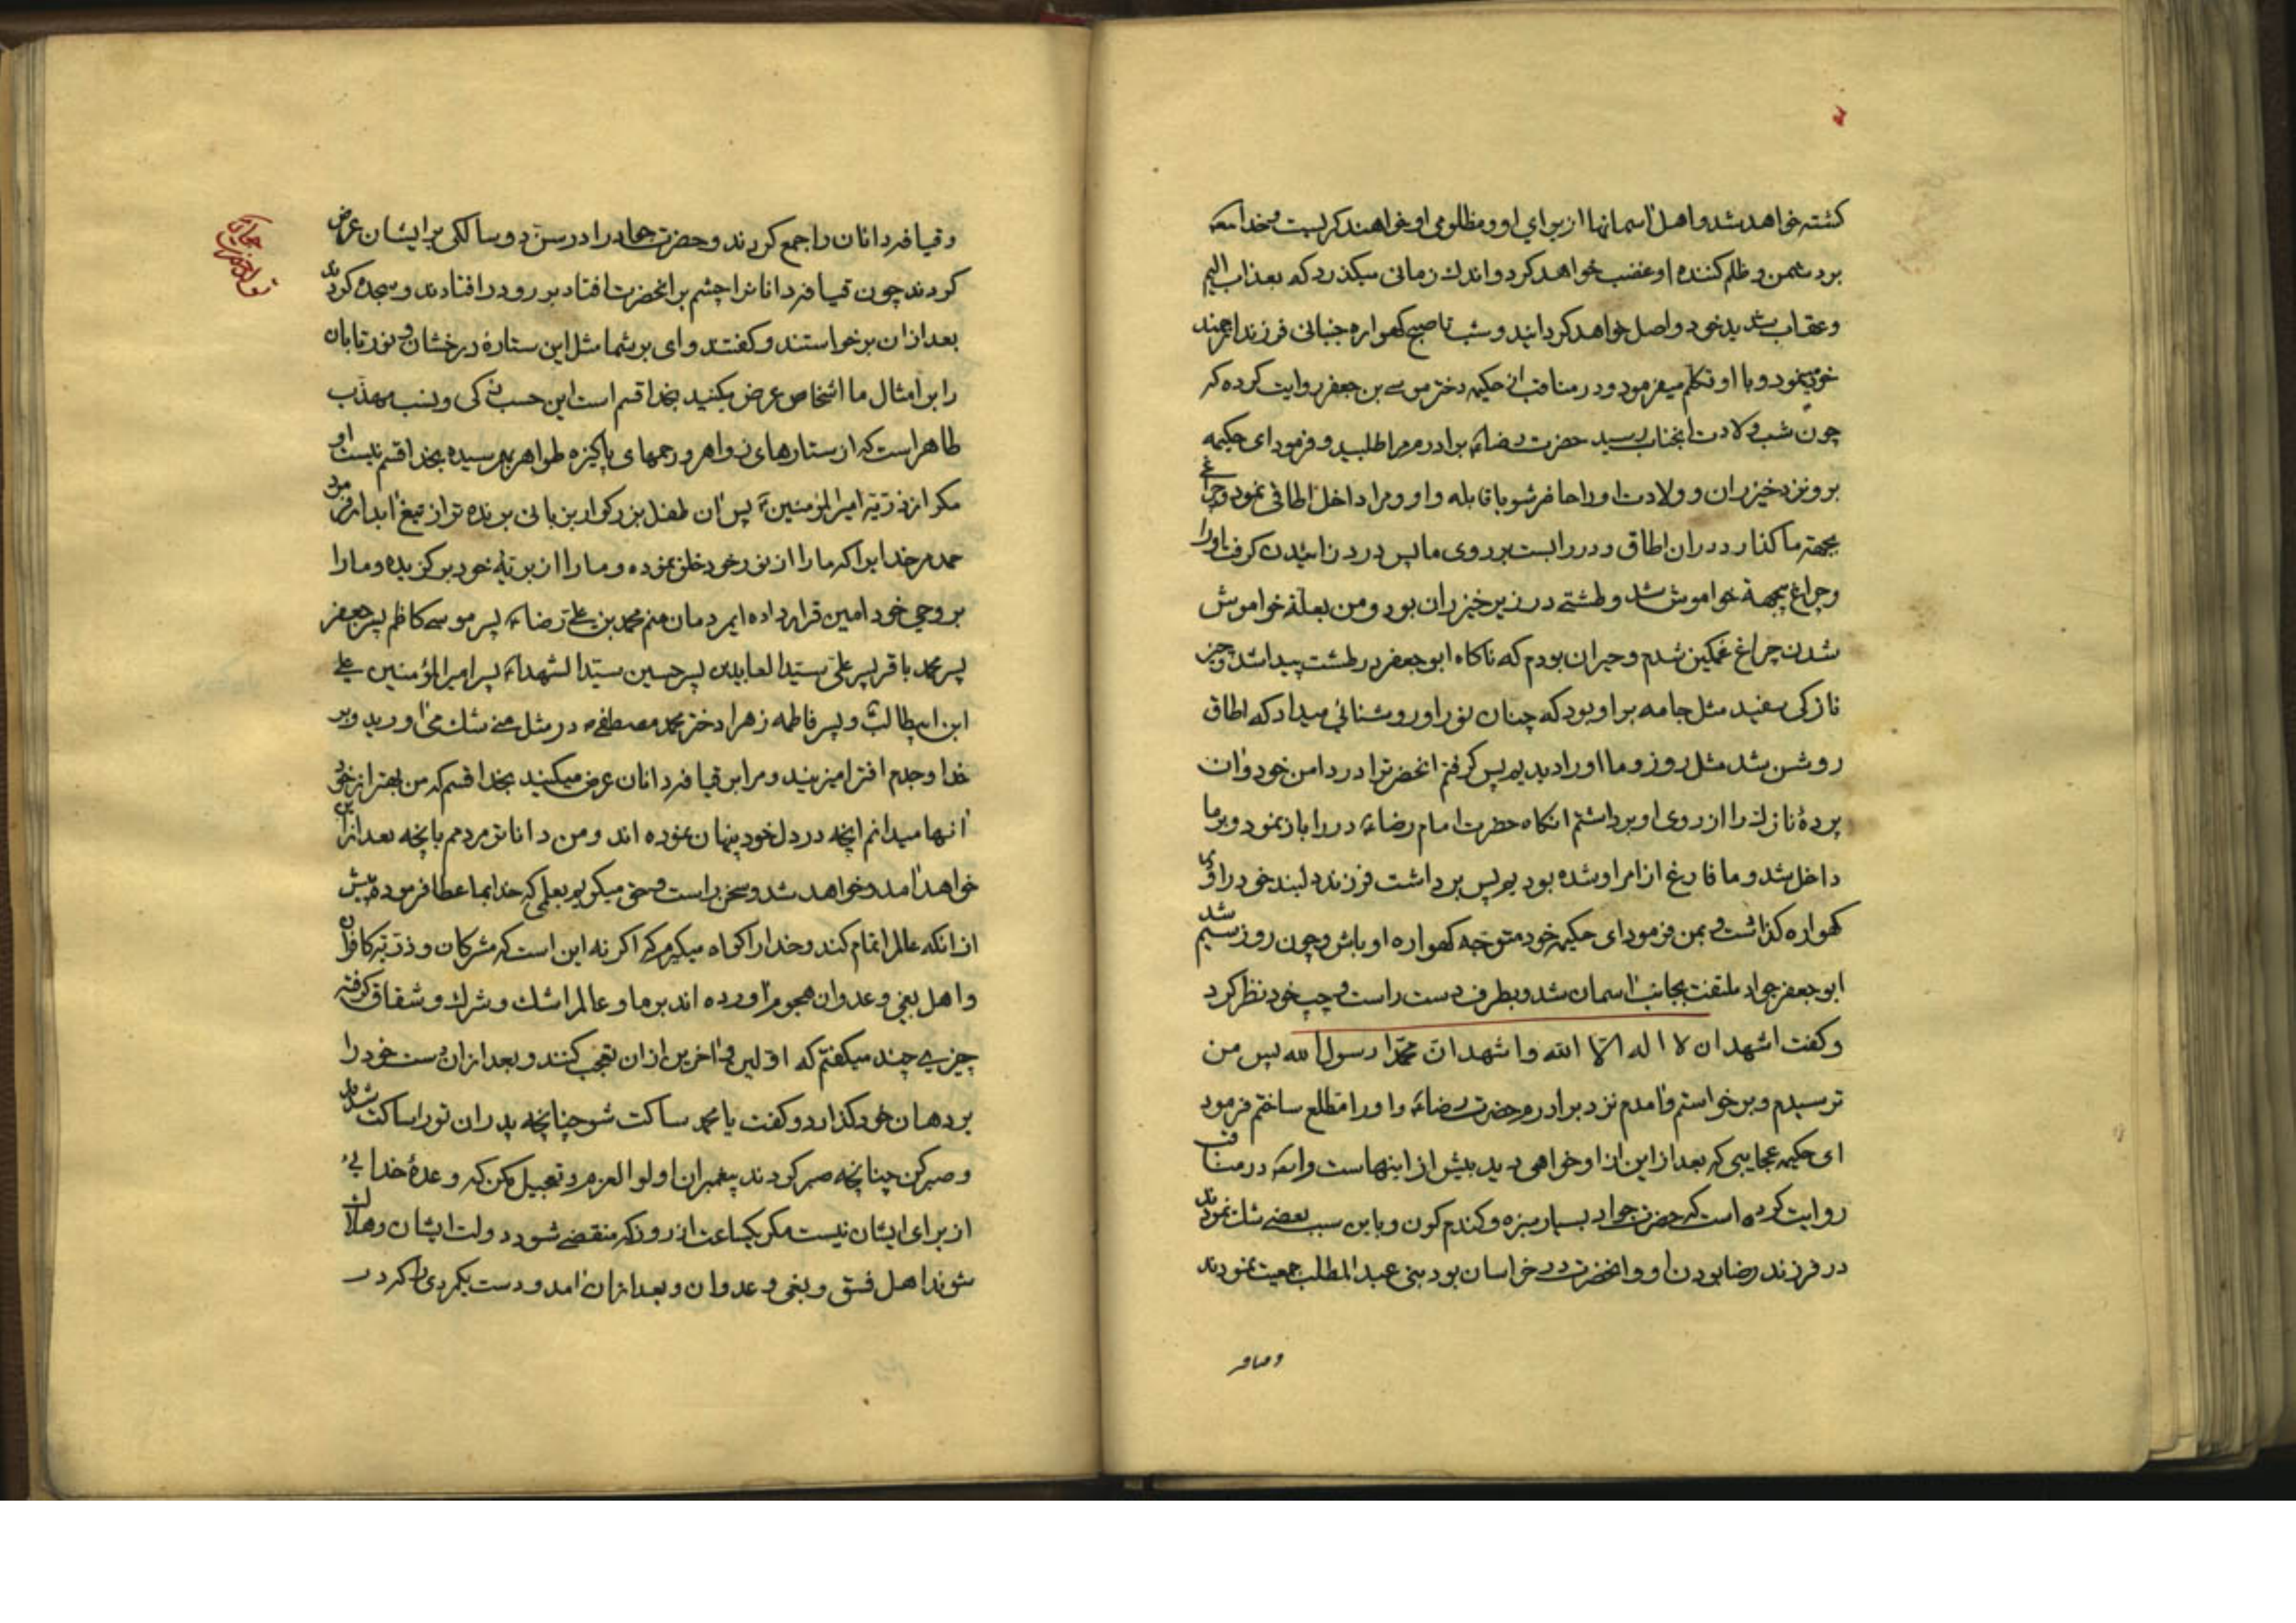 کشته خواهد شد و اهل آسمانها از برای او و مظلومی او خواهند کریست و خدا
بر دشمن و ظلم کننده او غضب خواهد کرد و اندك زمانی میکذرد که بعذاب الیم
و عقاب شدید خود واصل خواهد کردانید و شب تا صبح کهواره جنبانی فرزند ارجمند
خود مینمود و با او تکلم میفرمود و در مناقب از حکیمه دختر موسی بن جعفر روایت کرده که
چون شب ولادت انجناب رسید حضرت رضا برادرم مرا طلبید و فرمود ای حکیمه
برو نزد خیزران و ولادت او را حاضر شو با قابله و او و مرا داخل اطاقی نمود و چراغی
بجهة ما کذارد در ان اطاق و در را بست بر روی ما پس درد زائیدن کرفت او را
و چراغ خواموش شد و طشتی در زیر خیزران بود و من بعلة خواموش
شدن چراغ غمکین شدم و حیران بودم که ناکاه ابو جعفر در طشت پیدا شد و چیز
نازکی سفید مثل جامه بر او بود که چنان نور او روشنائی میداد که اطاق
روشن شد مثل روز و ما او را دیدیم پس کرفتم انحضرترا در دامن خود و ان
پردهٔ نازك را از روی او برداشتم انکاه حضرت امام رضا در را باز نمود و بر ما
داخل شد و ما فارغ از امر او شده بودیم پس برداشت فرزند دلبند خود را و در
کهواره کذاشت و بمن فرمود ای حکیمه خود متوجه کهواره او باش و چون روز سیم شد
ابو جعفر جواد ملتفت بجانب آسمان شد و بطرف دست راست و چپ خود نظر کرد
و کفت اشهد ان لا اله الا الله و اشهد ان محمدا رسول الله پس من
ترسیدم و برخواستم و آمدم نزد برادرم حضرت رضا و او را مطلع ساختم فرمود
ای حکیمه عجایبی که بعد از این از او خواهی دید بیش از اینهاست و در مناقب
روایت کرده است که حضرت جواد بسیار سبزه و کندم کون و باین سبب بعضی شك نمودند
در فرزند رضا بودن او و انحضرت در خراسان بود بنی عبد المطلب جمعیت نمودند
و قیافه دانان را جمع کردند و حضرت جواد را در سن دو سالکی بر ایشان عرض
کردند چون قیافه دانانرا چشم بر انحضرت افتاد بر رو در افتادند و سجده کردند
بعد از ان برخواستند و کفتند وای بر شما مثل این ستارهٔ درخشان و نور تابان
را بر امثال ما اشخاص عرض میکنید بخدا قسم است این حسب زکی و نسب مهذب
طاهر است که از ستارهای زواهر و رحمهای پاکیزه طواهر بهم رسیده بخدا قسم نیست او
مکر از ذریه امیر المؤمنین پس ان طفل بزرکوار بزبانی برنده تر از تیغ آبدار فرمود
حمد مر خدایرا که ما را از نور خود خلق نموده و ما را از بریه خود برکزیده و ما را
بر وحی خود امین قرار داده ایمردمان منم محمد بن علی رضا پسر موسی کاظم پسر جعفر
پسر محمد باقر پسر علی سید العابدین پسر حسین سید الشهداء پسر امیر المؤمنین علی
ابن ابیطالب و پسر فاطمه زهرا دختر محمد مصطفی در مثل منی شك می آورید و بر
خدا و جدم افترا میزنید و مرا بر قیافه دانان عرض میکنید بخدا قسم که من بهتر از خود
آنها میدانم انچه در دل خود پنهان نموده اند و من داناتر مردمم بانچه بعد از این
خواهد آمد و خواهد شد و سخن راست و حق میکویم بعلمی که خدا بما عطا فرموده پیش
از انکه عالم را تمام کند و خدا را کواه میکیرم که اکر نه این است که مشرکان و ذریه کافران
و اهل بغی و عدوان هجوم آورده اند بر ما و عالم را شك و شرك و شقاق کرفته
چیزی چند میکفتم که اولین و آخرین از ان تعجب کنند و بعد از ان دست خود را
بر دهان خود کذارد و کفت یا محمد ساکت شو چنانچه پدران تو ساکت شدند
و صبر کن چنانچه صبر کردند پیغمبران اولو العزم و تعجیل مکن که وعدهٔ خدایی
از برای ایشان نیست مکر یکساعت از روز که منقضی شود دولت ایشان و هلاك
شوند اهل فسق و بغی و عدوان و بعد از ان آمد و دست بکمر